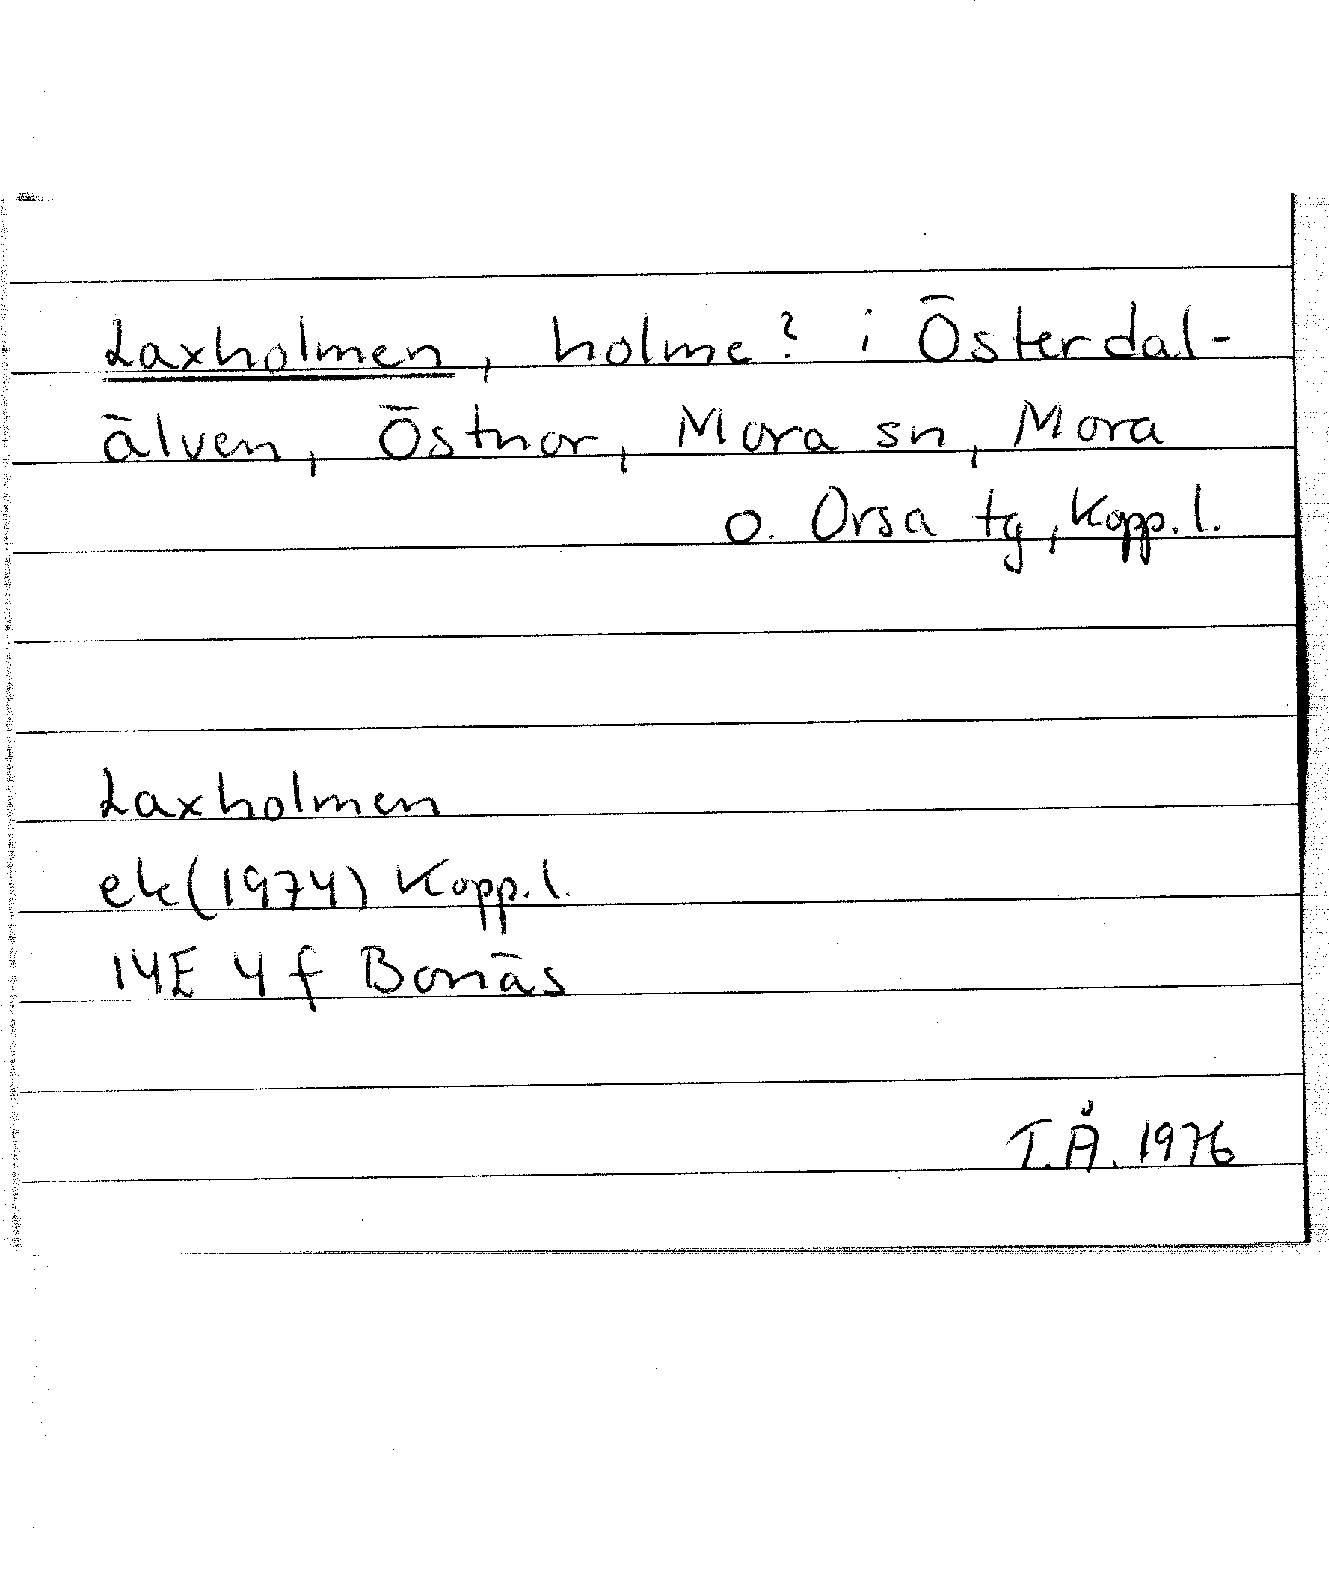 Laxholmen, holme? i Österdal-
älven, Östnor, Mora sn, Mora
o. Orsa tg, Kopp.l.
Laxholmen
ek (1974) Kopp.l.
14E 4f Bonäs
T.Å. 1976